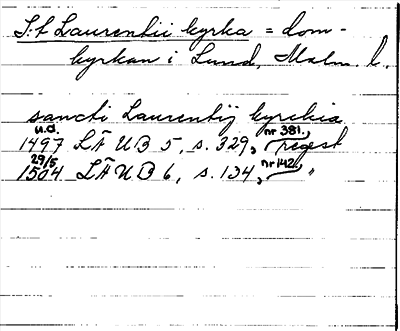 S:t Laurentii kyrka = dom-
kyrkan i Lund, Malm. l.
sancti Laurentij kyrckia
u.d. nr 381.
1497 LÄUB 5, s. 329, regest
29/5 nr 142.
1504 LÄUB 6, s. 134, "